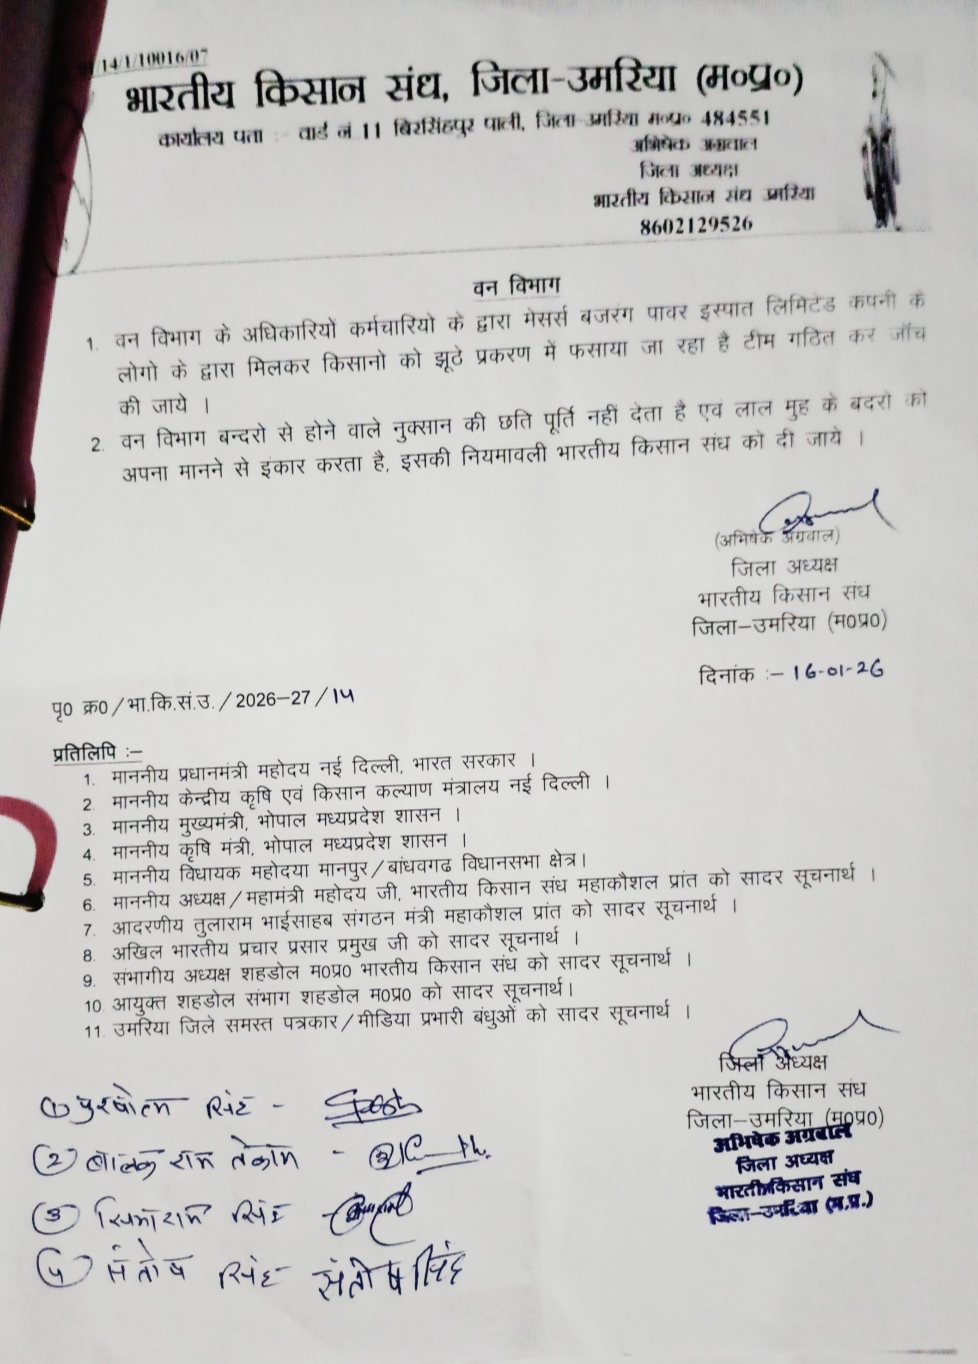 /14/1/10016/07
भारतीय किसान संध, जिला-उमरिया (म०प्र०)
कार्यालय पता : वार्ड नं 11 बिरसिंहपुर पाली, जिला उमरिया म०प्र० 484551
अभिषेक अग्रवाल
जिला अध्यक्ष
भारतीय किसान संध उमरिया
8602129526
वन विभाग
1. वन विभाग के अधिकारियों कर्मचारियो के द्वारा मेसर्स बजरंग पावर इस्पात लिमिटेड कंपनी के
लोगो के द्वारा मिलकर किसानो को झूठे प्रकरण में फसाया जा रहा है टीम गठित कर जॉच
की जाये ।
2. वन विभाग बन्दरो से होने वाले नुक्सान की छति पूर्ति नहीं देता है एवं लाल मुह के बंदरो को
अपना मानने से इंकार करता है, इसकी नियमावली भारतीय किसान संध को दी जाये ।
(अभिषेक अग्रवाल)
जिला अध्यक्ष
भारतीय किसान संध
जिला–उमरिया (म0प्र0)
दिनांक :– 16-01-26
पृ0 क्र0/भा.कि.सं.उ./2026–27/14
प्रतिलिपि :–
1. माननीय प्रधानमंत्री महोदय नई दिल्ली, भारत सरकार ।
2. माननीय केन्द्रीय कृषि एवं किसान कल्याण मंत्रालय नई दिल्ली ।
3. माननीय मुख्यमंत्री, भोपाल मध्यप्रदेश शासन ।
4. माननीय कृषि मंत्री, भोपाल मध्यप्रदेश शासन ।
5. माननीय विधायक महोदया मानपुर/बांधवगढ विधानसभा क्षेत्र।
6. माननीय अध्यक्ष/महामंत्री महोदय जी, भारतीय किसान संध महाकौशल प्रांत को सादर सूचनार्थ ।
7. आदरणीय तुलाराम भाईसाहब संगठन मंत्री महाकौशल प्रांत को सादर सूचनार्थ ।
8. अखिल भारतीय प्रचार प्रसार प्रमुख जी को सादर सूचनार्थ ।
9. संभागीय अध्यक्ष शहडोल म0प्र0 भारतीय किसान संध को सादर सूचनार्थ ।
10. आयुक्त शहडोल संभाग शहडोल म0प्र0 को सादर सूचनार्थ।
11. उमरिया जिले समस्त पत्रकार/मीडिया प्रभारी बंधुओं को सादर सूचनार्थ ।
जिला अध्यक्ष
भारतीय किसान संध
जिला–उमरिया (म0प्र0)
अभिषेक अग्रवाल
जिला अध्यक्ष
भारतीय किसान संघ
जिला–उमरिया (म.प्र.)
① पुरषोत्म सिंह -
② बालक राम तेकाम -
③ सिंह
④ संतोष सिंह संतोष सिंह